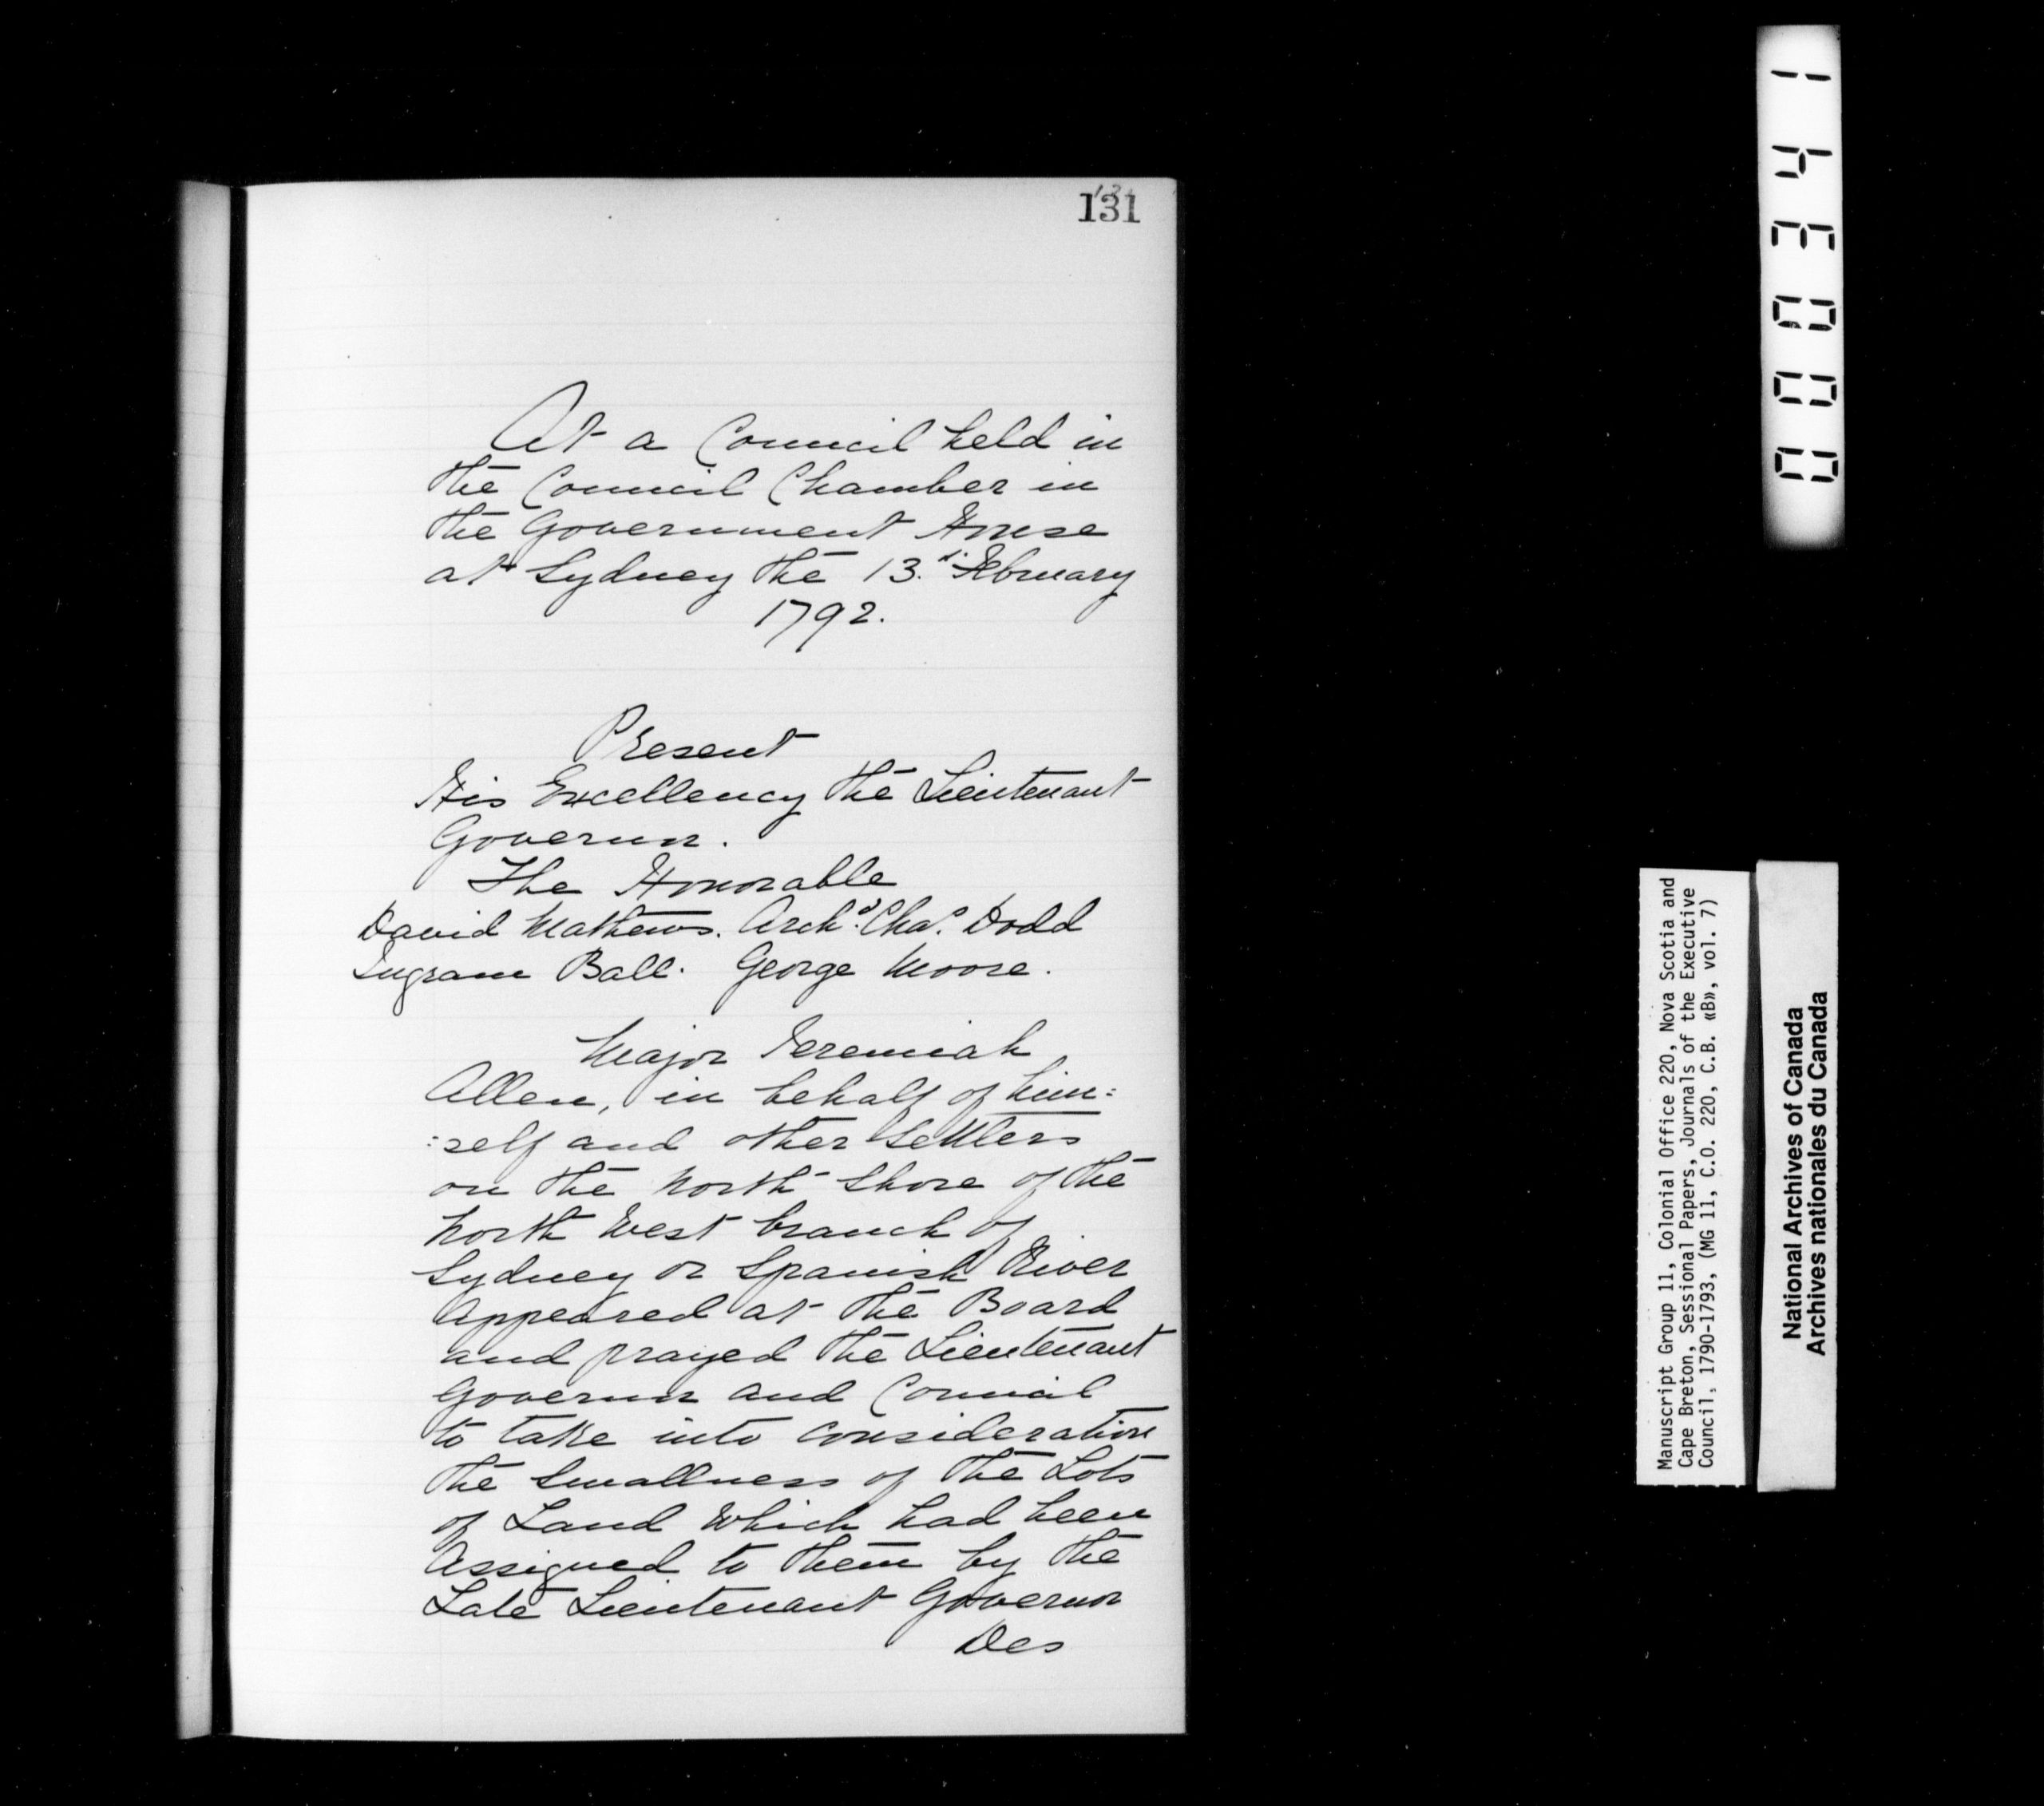 131
At a Council held in
the Council Chamber in
the Government House
at Sydney the 13. February
1792.
Present
His Excellency the Lieutenant
Governor.
The Honorable
David Mathews. Archd. Chas. Dodd
Ingram Ball. George Moore.
Major Jeremiah
Allen, in behalf of him:
:self and other Settlers
on the North Shore of the
North West branch of
Sydney or Spanish River
Appeared at the Board
and prayed the Lieutenant
Governor and Council
to take into Consideration
the Smallness of the Lots
of Land Which had been
Assigned to them by the
Late Lieutenant Governor
Des
000341
Manuscript Group 11, Colonial Office 220, Nova Scotia and
Cape Breton, Sessional Papers, Journals of the Executive
Council, 1790-1793, (MG 11, C.O. 220, C.B. «B», vol. 7)
National Archives of Canada
Archives nationales du Canada